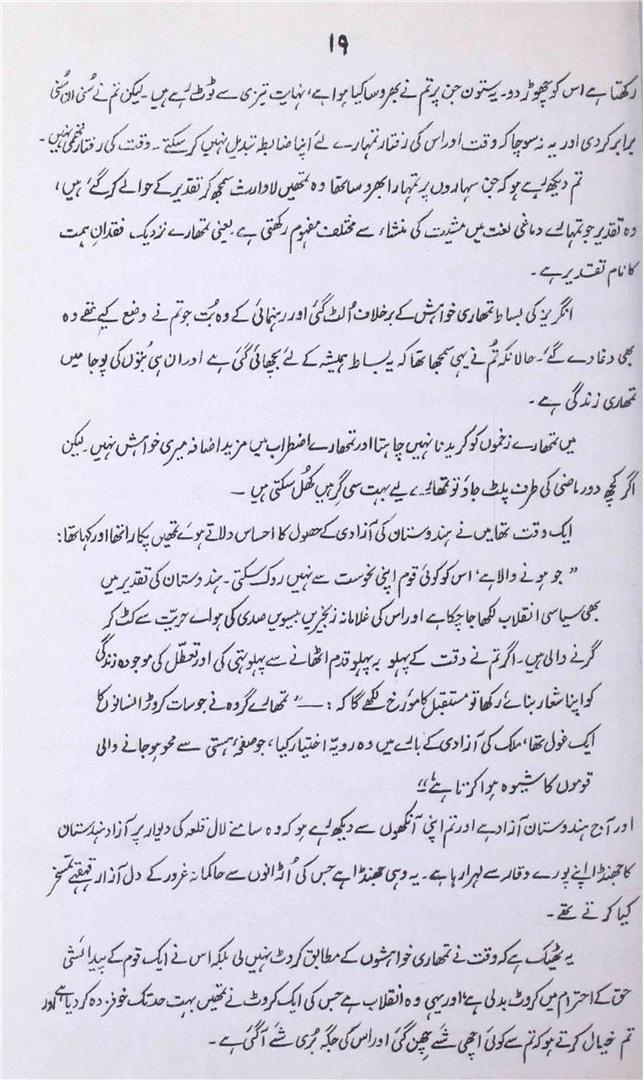 ۱۹
رکھتا ہے اس کو چھوڑ دو۔ یہ ستون جن پر تم نے بھروسا کیا ہوا ہے، نہایت تیزی سے ٹوٹ رہے ہیں۔ لیکن تم نے سُنی ان سُنی
برابر کر دی اور یہ نہ سوچا کہ وقت اور اس کی رفتار تمہارے لئے اپنا ضابطہ تبدیل نہیں کر سکتے۔ وقت کی رفتار تھمی نہیں۔
تم دیکھ رہے ہو کہ جن سہاروں پر تمہارا بھروسا تھا وہ تمھیں لاوارث سمجھ کر تقدیر کے حوالے کر گئے ہیں،
وہ تقدیر جو تمہارے دماغی لغت میں مشیت کی منشاء سے مختلف مفہوم رکھتی ہے یعنی تمھارے نزدیک فقدانِ ہمت
کا نام تقدیر ہے۔
انگریز کی بساط تمھاری خواہش کے برخلاف اُلٹ گئی اور رہنمائی کے وہ بُت جو تم نے وضع کیے تھے وہ
بھی دغا دے گئے۔ حالانکہ تم نے یہی سمجھا تھا کہ یہ بساط ہمیشہ کے لئے بچھائی گئی ہے اور ان ہی بتوں کی پوجا میں
تمھاری زندگی ہے۔
میں تمھارے زخموں کو کریدنا نہیں چاہتا اور تمھارے اضطراب میں مزید اضافہ میری خواہش نہیں۔ لیکن
اگر کچھ دور ماضی کی طرف پلٹ جاؤ تو تمھارے لیے بہت سی گرہیں کھُل سکتی ہیں۔
ایک وقت تھا میں نے ہندوستان کی آزادی کے حصول کا احساس دلاتے ہوئے تمھیں پکارا تھا اور کہا تھا:
"جو ہونے والا ہے، اس کو کوئی قوم اپنی نحوست سے نہیں روک سکتی۔ ہندوستان کی تقدیر میں
بھی سیاسی انقلاب لکھا جا چکا ہے اور اس کی غلامانہ زنجیریں بیسویں صدی کی ہوائے حریت سے کٹ کر
گرنے والی ہیں۔ اگر تم نے وقت کے پہلو بہ پہلو قدم اٹھانے سے پہلو تہی کی اور تعطّل کی موجودہ زندگی
کو اپنا شعار بنائے رکھا تو مستقبل کا مورّخ لکھے گا کہ:— "تمھارے گروہ نے جو سات کروڑ انسانوں کا
ایک غول تھا، ملک کی آزادی کے بارے میں وہ رویّہ اختیار کیا، جو صفحۂ ہستی سے محو ہو جانے والی
قوموں کا شیوہ ہوا کرتا ہے"
اور آج ہندوستان آزاد ہے اور تم اپنی آنکھوں سے دیکھ رہے ہو کہ وہ سامنے لال قلعہ کی دیوار پر آزاد ہندستان
کا جھنڈا اپنے پورے وقار سے لہرا رہا ہے۔ یہ وہی جھنڈا ہے جس کی اُڑانوں سے حاکمانہ غرور کے دل آزار قہقہے تمسّخر
کیا کرتے تھے۔
یہ ٹھیک ہے کہ وقت نے تمھاری خواہشوں کے مطابق کروٹ نہیں لی بلکہ اس نے ایک قوم کے پیدائشی
حق کے احترام میں کروٹ بدلی ہے، اور یہی وہ انقلاب ہے جس کی ایک کروٹ نے تمھیں بہت حد تک خوفزدہ کر دیا ہے اور
تم خیال کرتے ہو کہ تم سے کوئی اچھی شے چھن گئی اور اس کی جگہ بُری شے آ گئی ہے۔